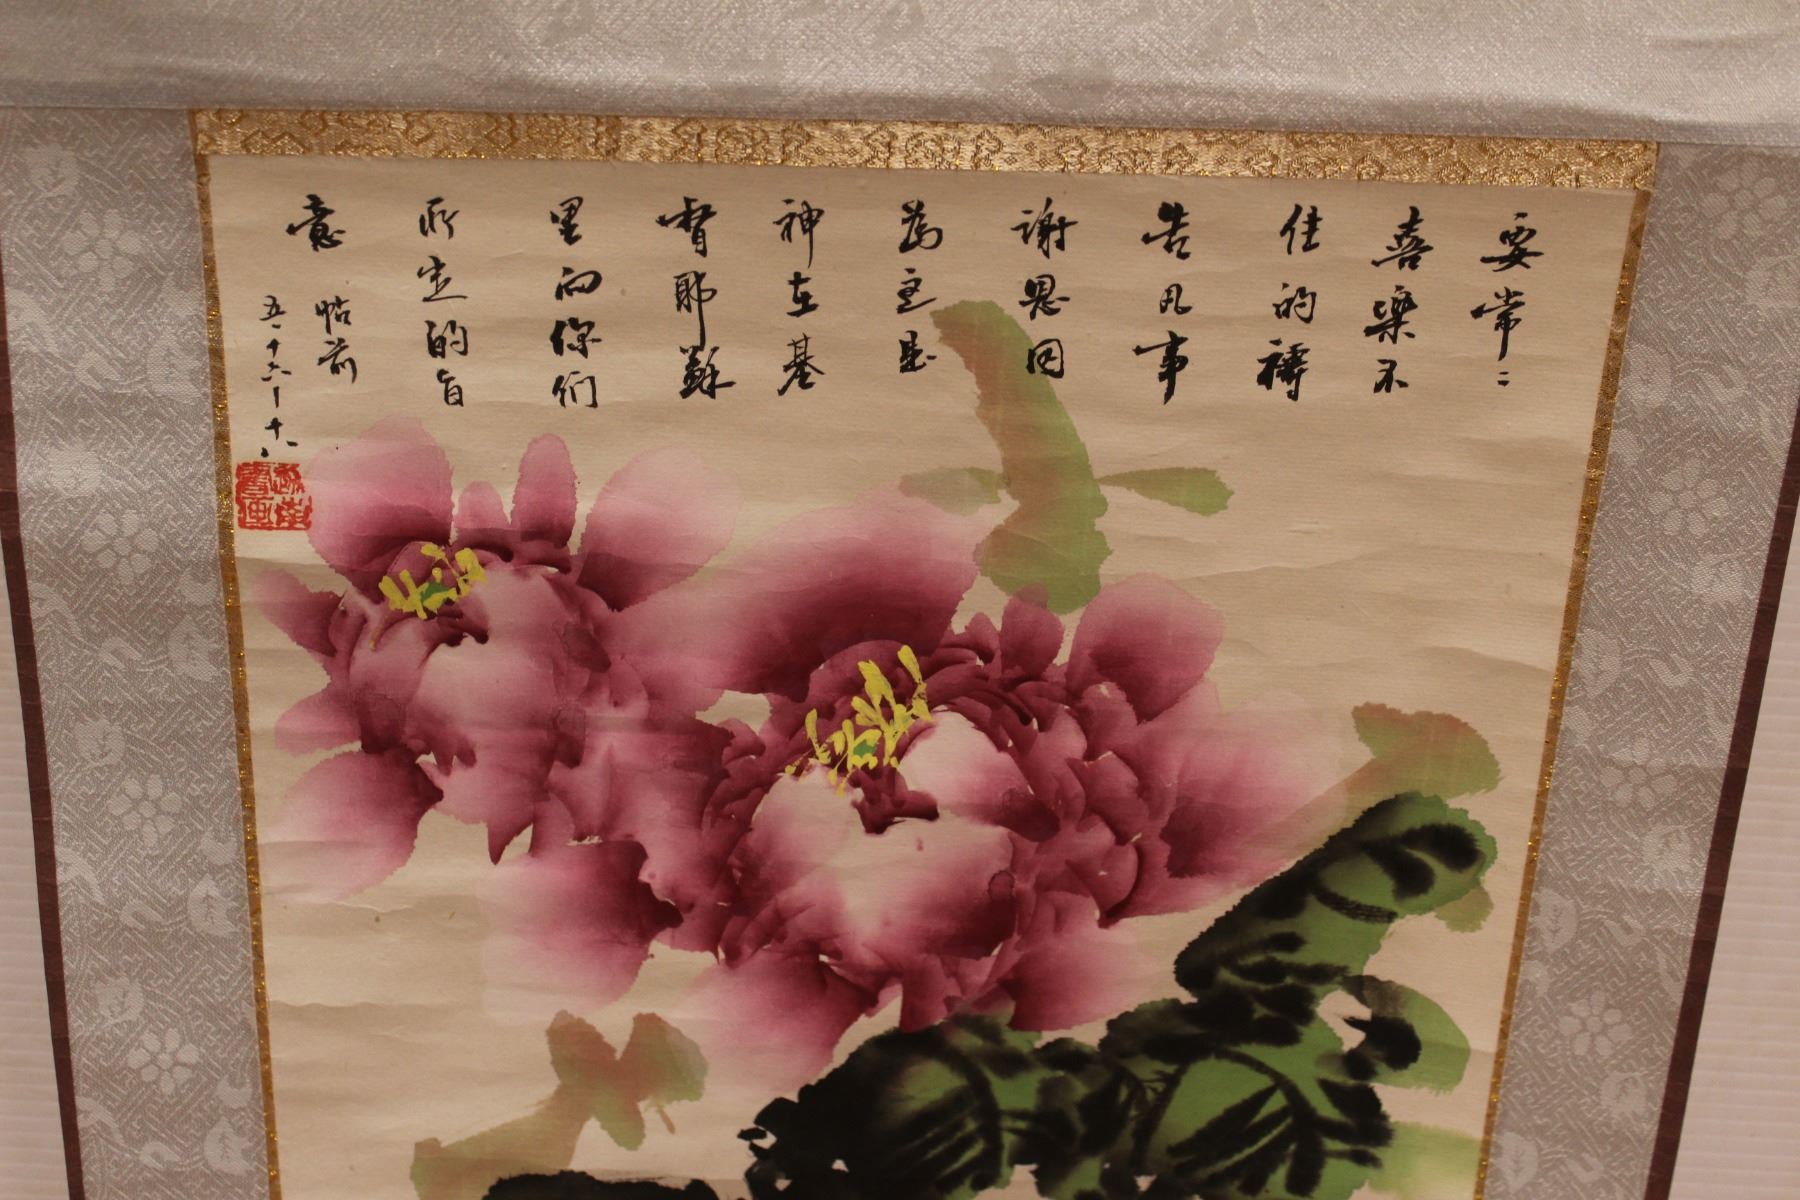 要常〻
喜樂不
住的禱
告凡事
謝恩因
為這是
神在基
督耶穌
里向你们
所定的旨
意
帖前
五·十六—十八